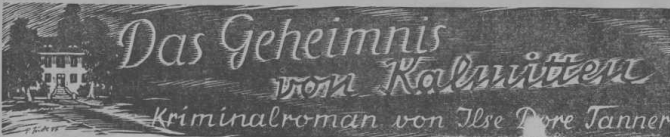 Das Geheimnis
von Kalmitten
Kriminalroman von Ilse Dore Tanner